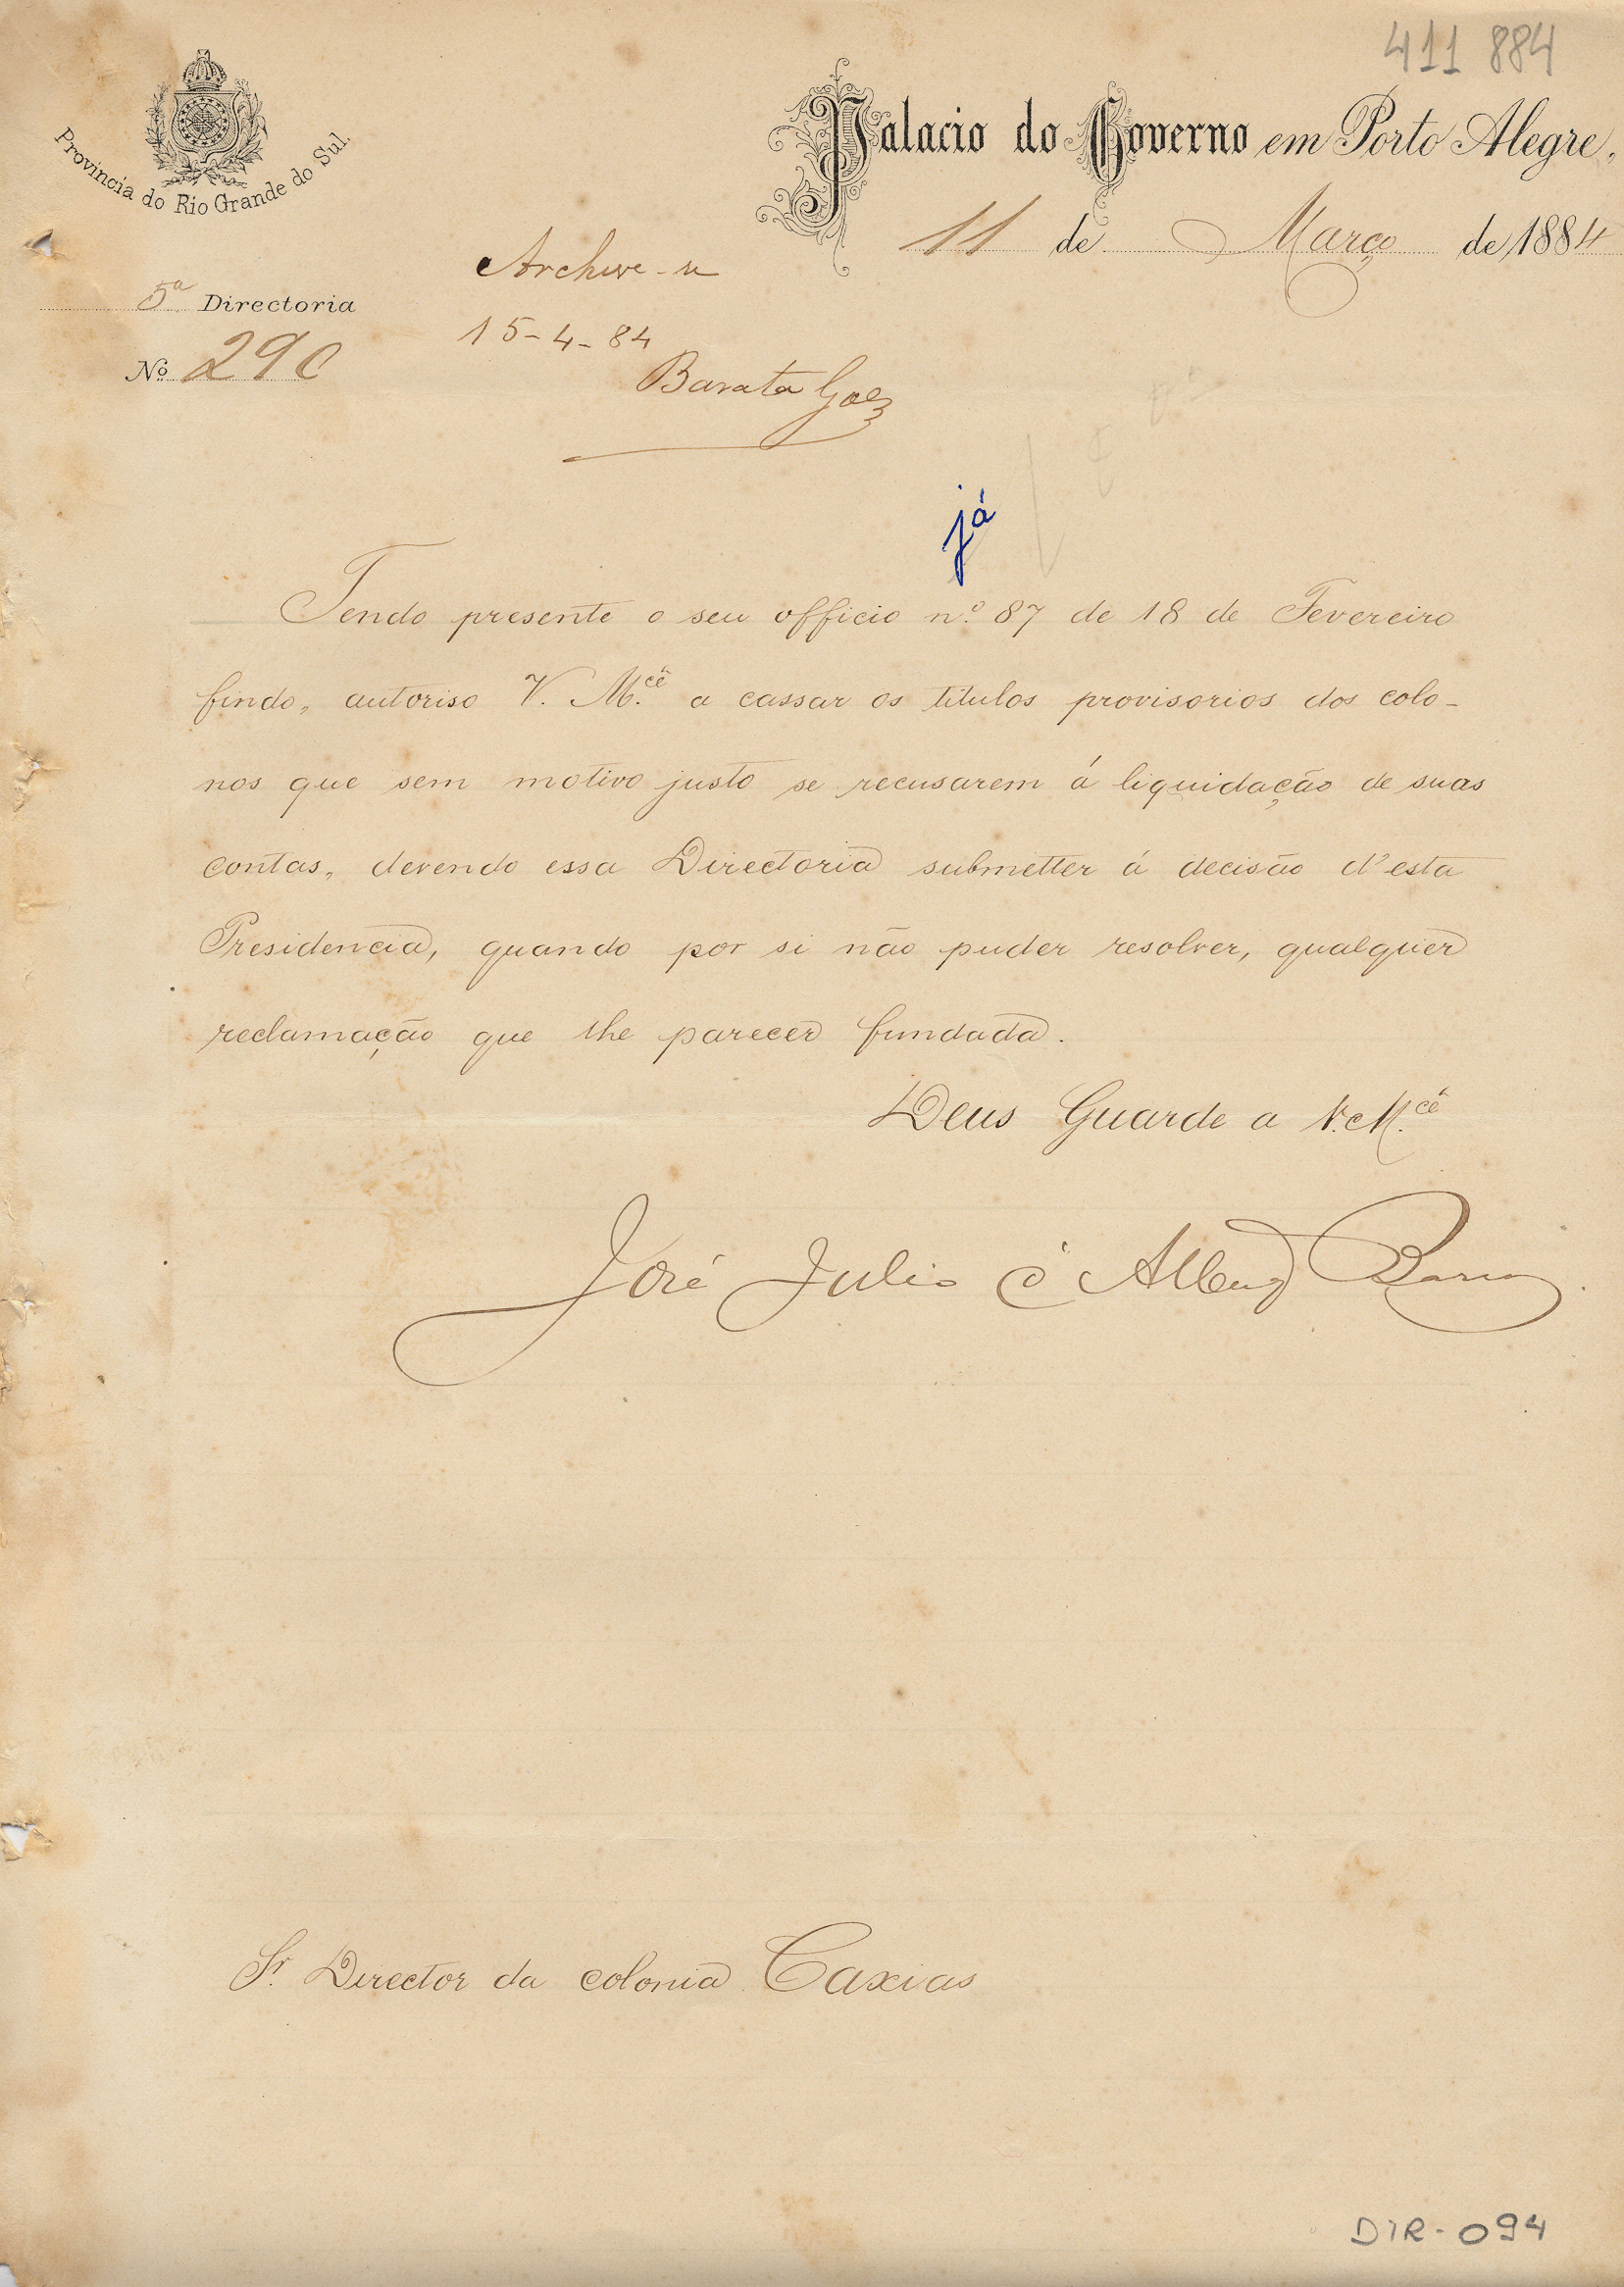 411 884
Provincia do Rio Grande do Sul.
Palacio do Governo em Porto Alegre,
11 de Março de 1884
5ª Directoria
Nº 290
Archive-se
15-4-84
Barata Goes
já
Tendo presente o seu officio n.º 87 de 18 de Fevereiro
findo, autoriso V. M.cê a cassar os titulos provisorios dos colo-
nos que sem motivo justo se recusarem á liquidação de suas
contas, devendo essa Directoria submetter á decisão d'esta
Presidencia, quando por si não puder resolver, qualquer
reclamação que lhe parecer fundada.
Deus Guarde a V. M.cê
José Julio d'Albuq Barros
Sr. Director da colonia Caxias
DIR-094